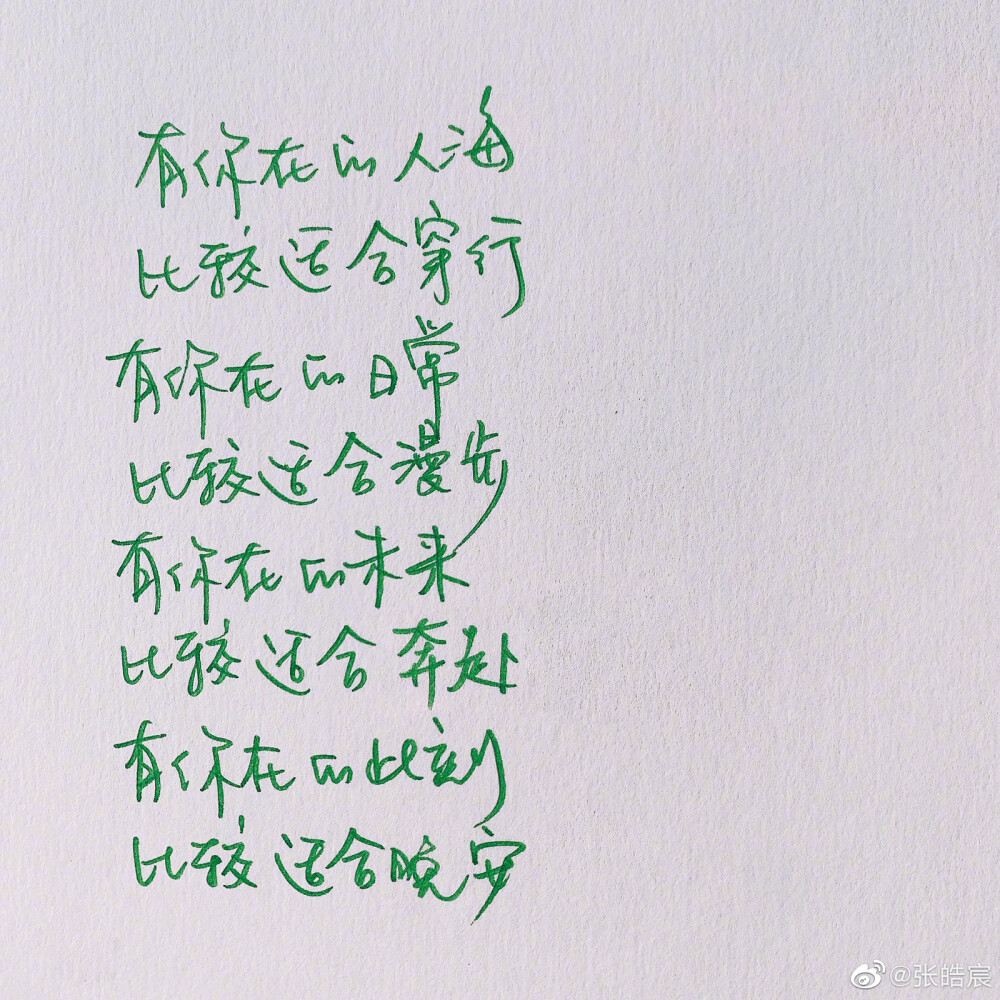 有你在的人海
比较适合穿行
有你在的日常
比较适合漫步
有你在的未来
比较适合奔赴
有你在的此刻
比较适合晚安
@张皓宸